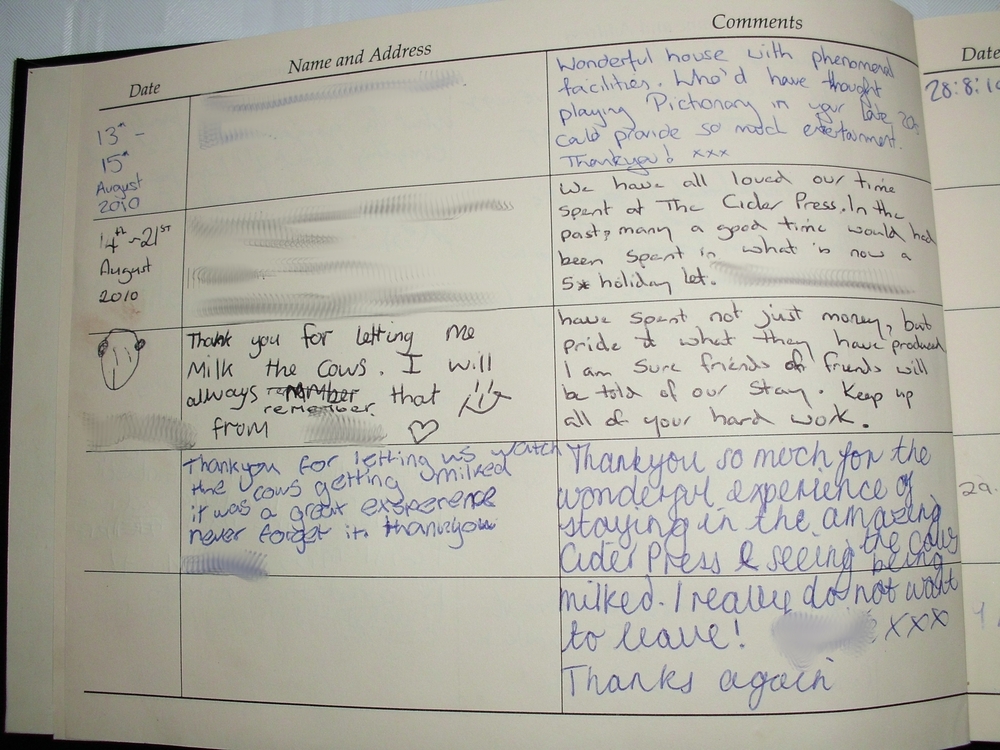 Date
Name and Address
Comments
Date
13th -
15th
August
2010
Wonderful house with phenomenal
facilities. Who'd have thought
playing Pictionary in your late 20s
could provide so much entertainment.
Thankyou! xxx
28:8:10
14th - 21st
August
2010
We have all loved our time
spent at The Cider Press. In the
past, many a good time would had
been spent in what is now a
5* holiday let.
Thank you for letting me
Milk the cows. I will
always remember that
remember
from
have spent not just money, but
pride it what they have produced
I am sure friends of friends will
be told of our stay. Keep up
all of your hard work.
Thankyou for letting us watch
the cows getting milked
it was a great exsperence
never forget it. thankyou
Thankyou so much for the
wonderful experience of
staying in the amazing
Cider Press & seeing the cows
being
milked. I really do not want
to leave!
xxx
Thanks again
29.